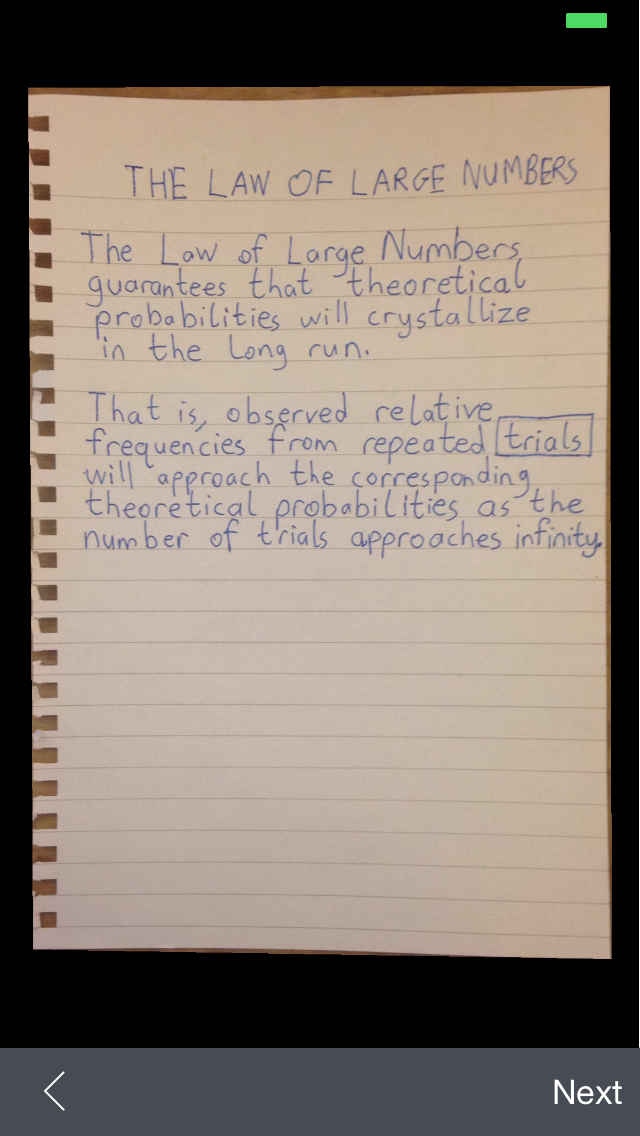 THE LAW OF LARGE NUMBERS
The Law of Large Numbers
guarantees that theoretical
probabilities will crystallize
in the long run.
That is, observed relative
frequencies from repeated trials
will approach the corresponding
theoretical probabilities as the
number of trials approaches infinity.
Next